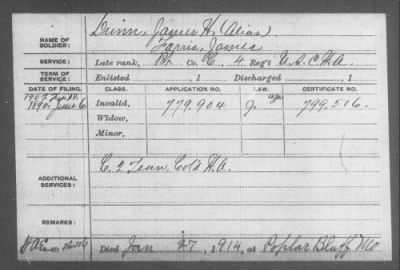 NAME OF SOLDIER: Dunn, James H. (Alias)
Farris, James
SERVICE: Late rank, Co. C, 4 Reg't U.S.C.H.A.
TERM OF SERVICE: Enlisted , 1 Discharged , 1
DATE OF FILING. CLASS. APPLICATION NO. LAW. CERTIFICATE NO.
1890 June 6 Invalid, 779.904 J. 799.516
Widow,
Minor,
ADDITIONAL SERVICES: C. 2 Tenn. Cold H.A.
REMARKS:
Died Jan 27, 1914, at Poplar Bluff Mo